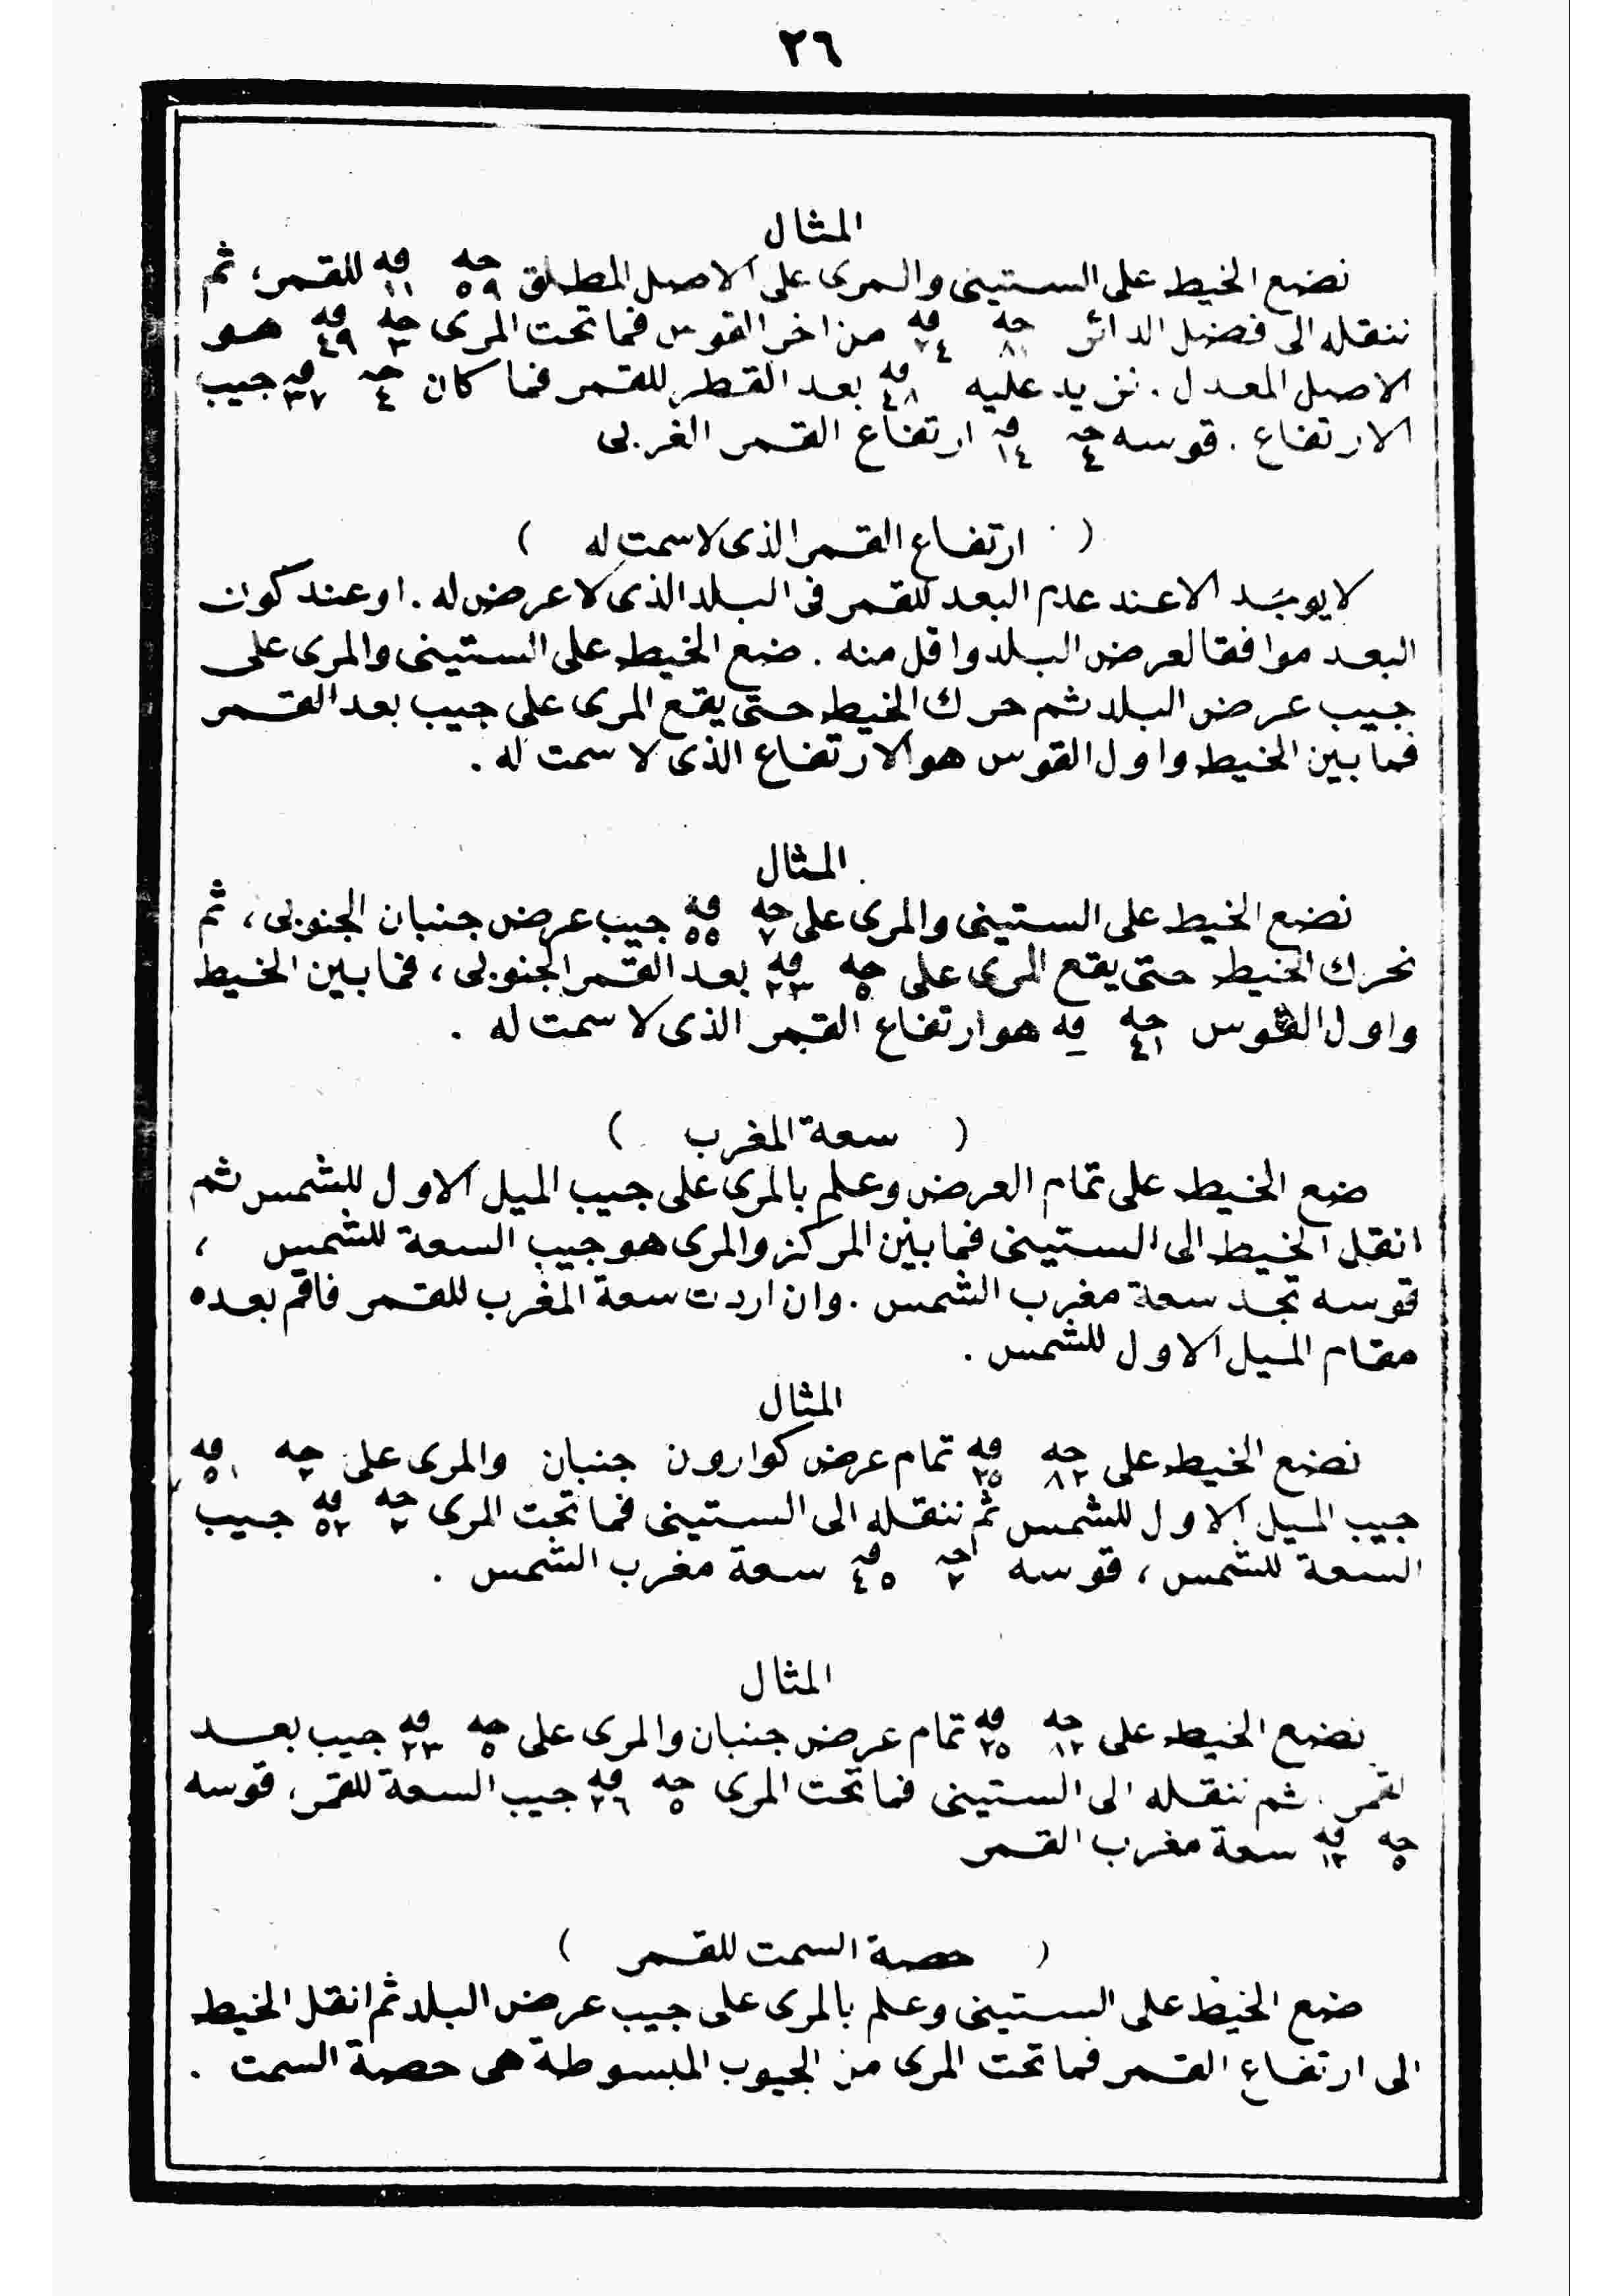 ٢٦
المثال
نضع الخيط على الستينى والمرى على الاصل المطلق جه ٥٩ قه ١١ للقمر، ثم
ننقله الى فضل الدائر جه قه من اخر القوس فما تحت المرى جه ٣ قه ٤٩ هو
الاصل المعدل . نزيد عليه قه ٤٨ بعد القطر للقمر فما كان جه ٤ قه ٣٧ جيب
الارتفاع . قوسه جه ٤ قه ١٤ ارتفاع القمر الغربى
( ارتفاع القمر الذى لا سمت له )
لا يوجد الا عند عدم البعد للقمر فى البلد الذى لا عرض له . او عند كون
البعد موافقا لعرض البلد واقل منه . ضع الخيط على الستينى والمرى على
جيب عرض البلد ثم حرك الخيط حتى يقع المرى على جيب بعد القمر
فما بين الخيط واول القوس هو الارتفاع الذى لا سمت له .
المثال
نضع الخيط على الستينى والمرى على جه ٧ قه ٥٥ جيب عرض جنبان الجنوبى، ثم
نحرك الخيط حتى يقع المرى على جه ٥ قه ٢٣ بعد القمر الجنوبى، فما بين الخيط
واول القوس جه ٤١ قه هو ارتفاع القمر الذى لا سمت له .
( سعة المغرب )
ضع الخيط على تمام العرض وعلم بالمرى على جيب الميل الاول للشمس ثم
انقل الخيط الى الستينى فما بين المركز والمرى هو جيب السعة للشمس ،
قوسه تجد سعة مغرب الشمس . وان اردت سعة المغرب للقمر فاقم بعده
مقام الميل الاول للشمس .
المثال
نضع الخيط على جه ٨٢ قه ٢٥ تمام عرض كوارون جنبان والمرى على جه ٢ قه ٥١
جيب الميل الاول للشمس ثم ننقله الى الستينى فما تحت المرى جه ٢ قه ٥٢ جيب
السعة للشمس، قوسه جه ٢ قه ٤٥ سعة مغرب الشمس .
المثال
نضع الخيط على جه ٨٢ قه ٢٥ تمام عرض جنبان والمرى على جه ٥ قه ٢٣ جيب بعد
لقمر . ثم ننقله الى الستينى فما تحت المرى جه ٥ قه ٢٦ جيب السعة للقمر، قوسه
جه ٥ قه ١٢ سعة مغرب القمر
( حصة السمت للقمر )
ضع الخيط على الستينى وعلم بالمرى على جيب عرض البلد ثم انقل الخيط
الى ارتفاع القمر فما تحت المرى من الجيوب المبسوطة هى حصة السمت .